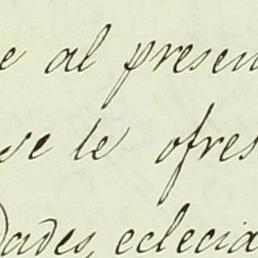 e al presen
se le ofres
dades, eclecia